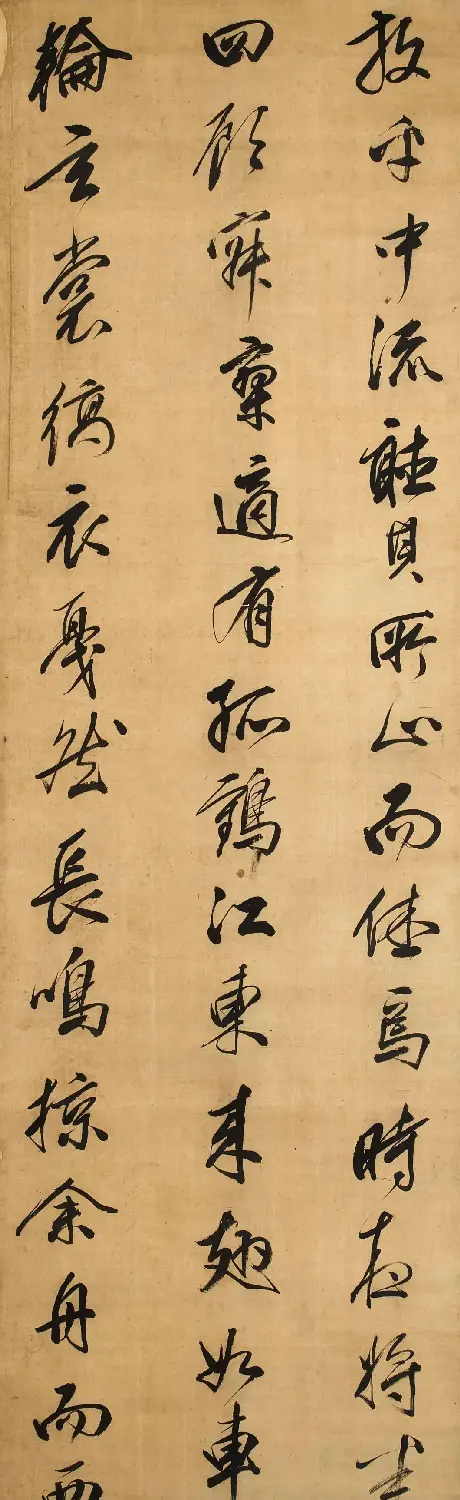 放乎中流聽其所止而休焉時夜將半
四顧寂寥適有孤鶴江東來翅如車
輪玄裳縞衣戛然長鳴掠余舟而西